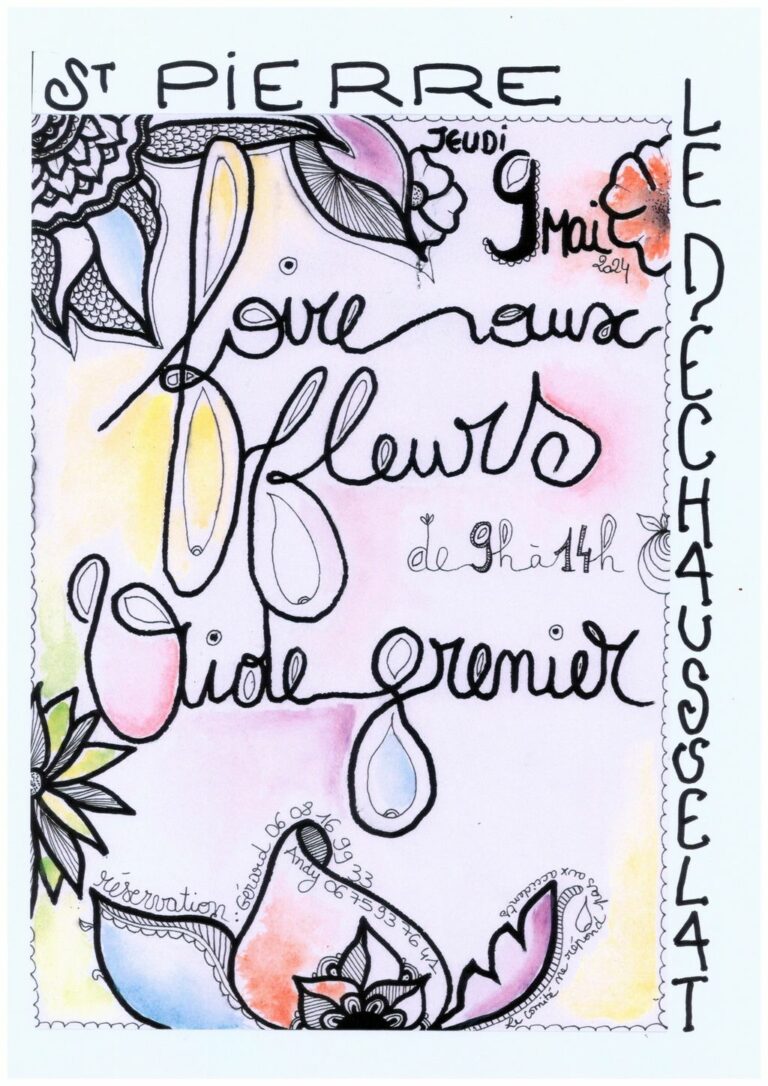 ST PIERRE
LE DECHAUSSELAT
JEUDI
9
Mai
2024
foire aux
fleurs
de 9h à 14h
Vide grenier
réservation : Gérard 06 08 16 99 33
Andy 06 75 93 76 41
Le comité ne répond
pas aux accidents